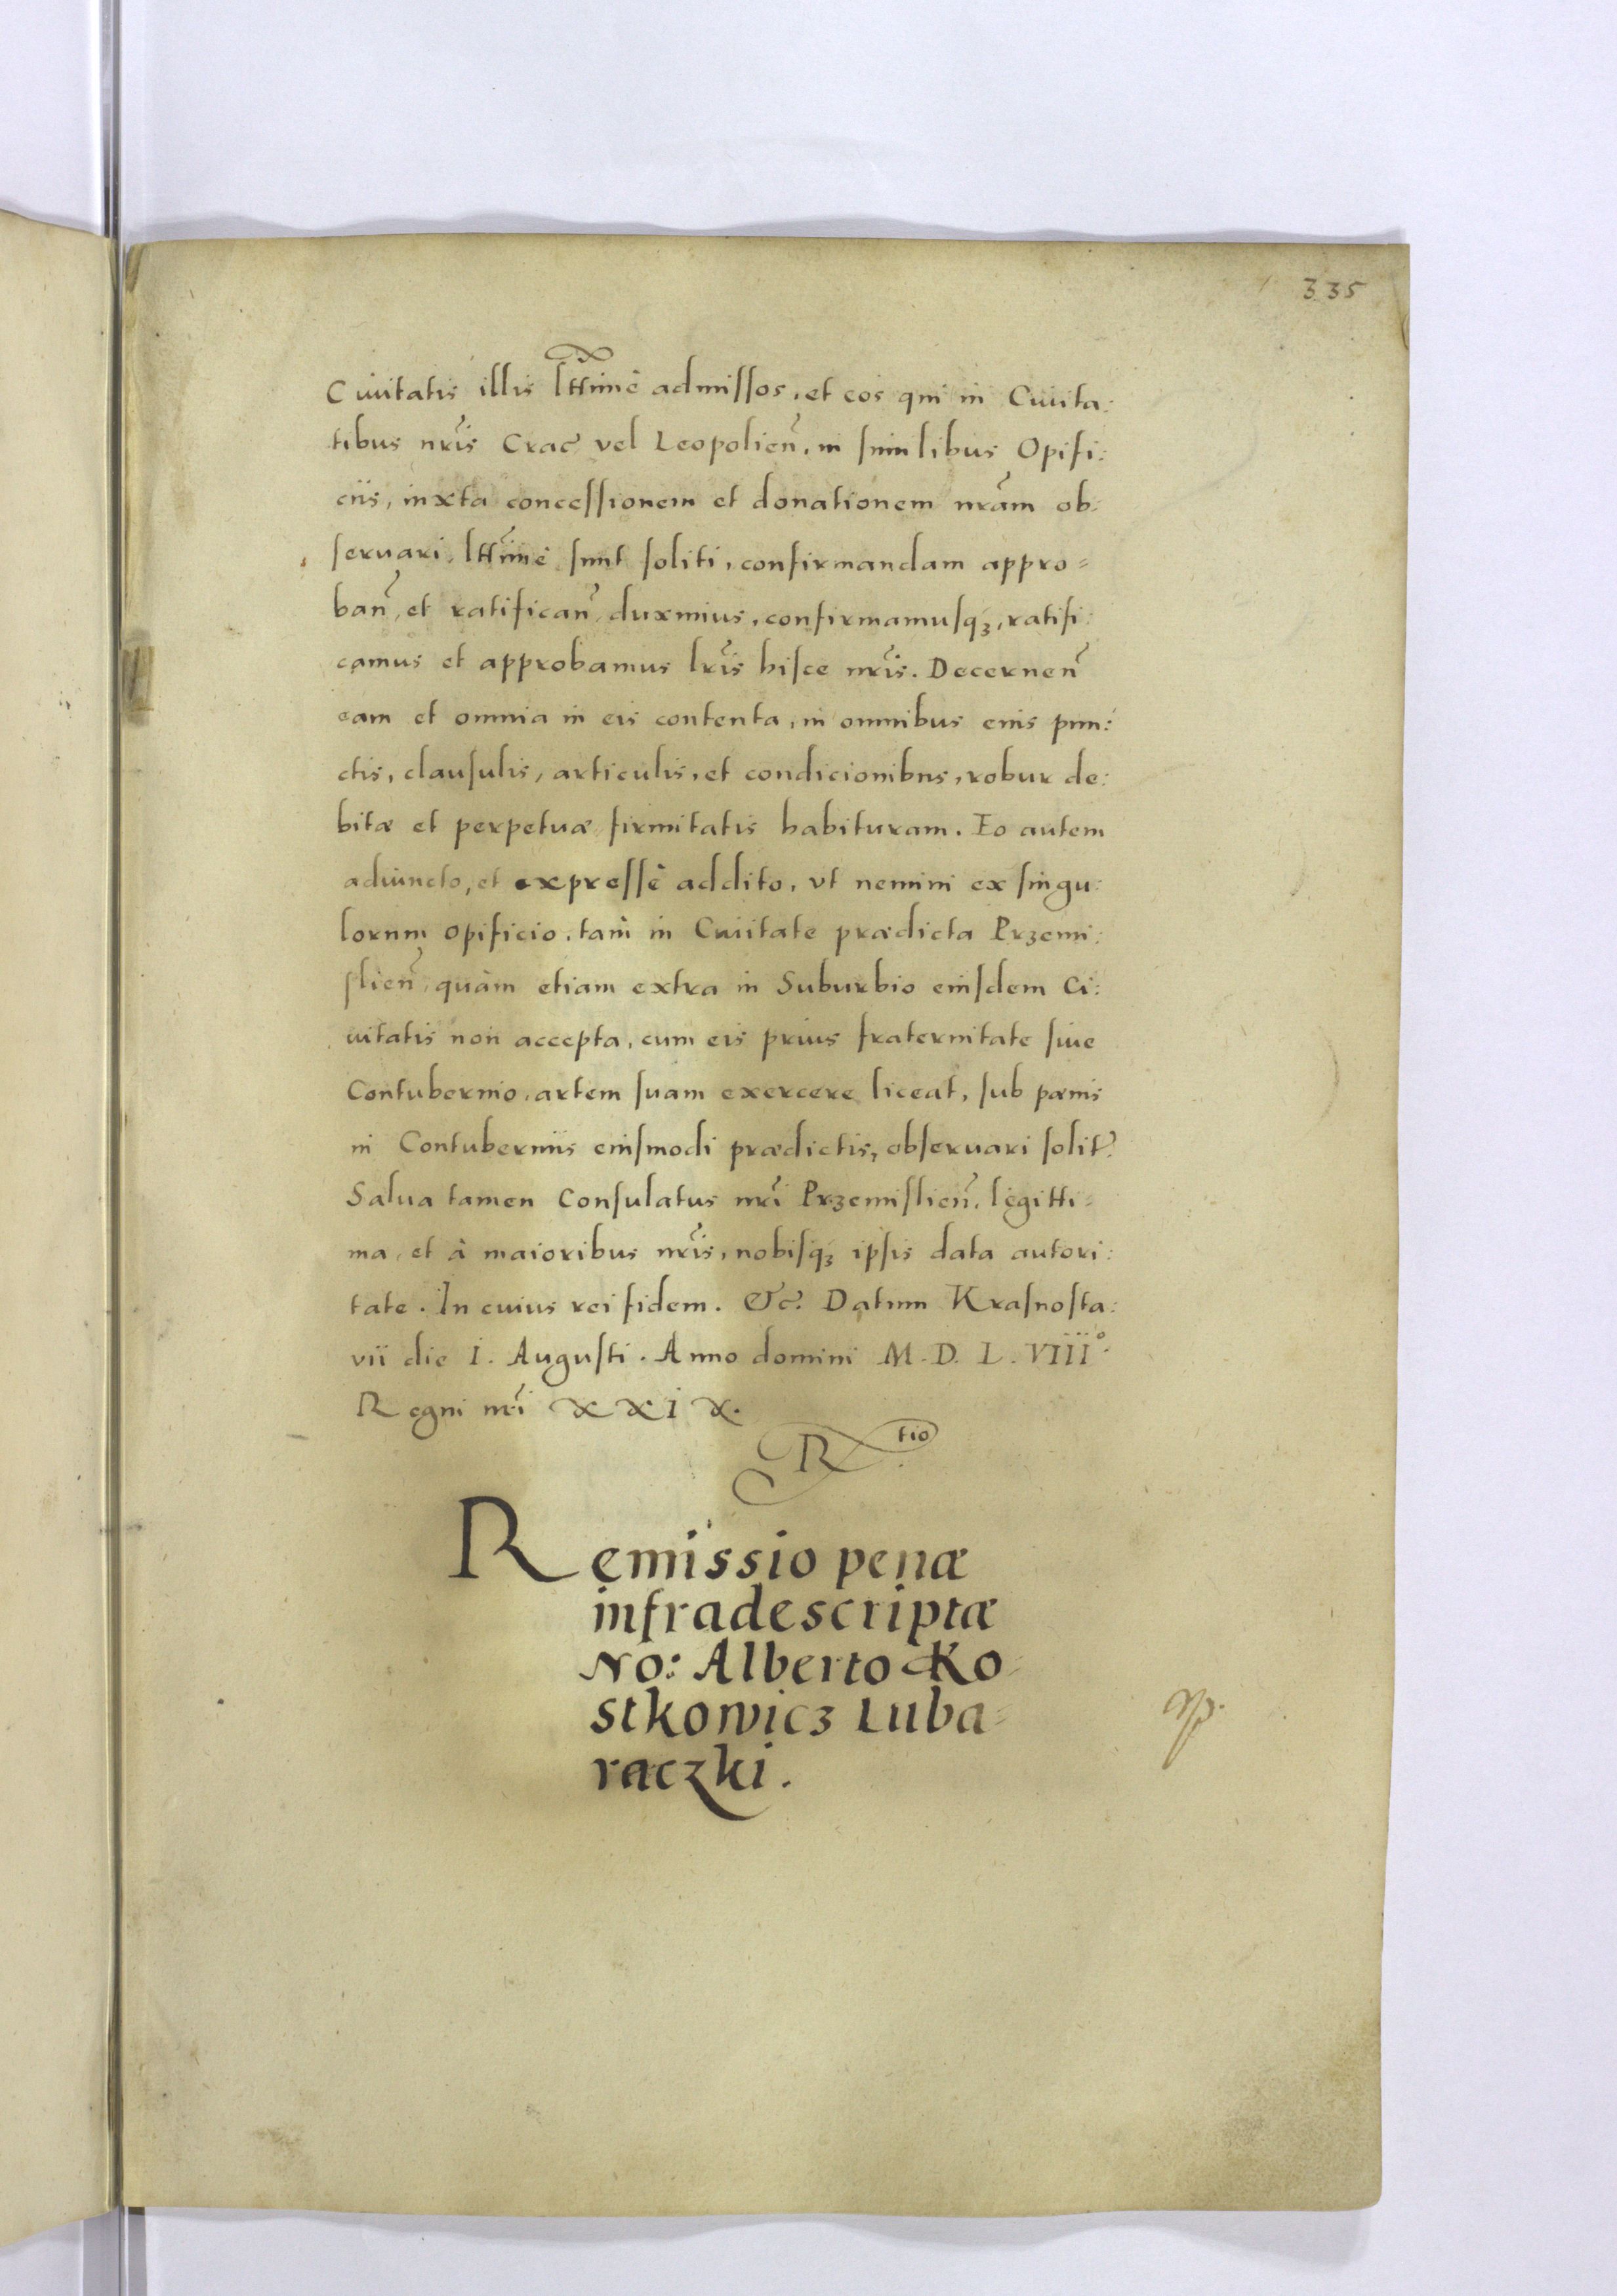 335
Ciuitatis illis lttimè admissos, et eos qui in Ciuita:
tibus nr̃is Crac̃ vel Leopolieñ, in similibus Opifi:
ciis, iuxta concessionem et donationem nr̃am ob:
seruari, lttimè sunt soliti, confirmandam appro=
bañ, et ratificañ, duximus, confirmamusqꝫ, ratifi:
camus et approbamus lr̃is hisce nr̃is. Decerneñ
eam et omnia in eis contenta, in omnibus eius pun:
ctis, clausulis, articulis, et condicionibus, robur de:
bitæ et perpetuæ firmitatis habituram. Eo autem
adiuncto, et expressè addito, vt nemini ex singu:
lorum opificio, tam̀ in Ciuitate prædicta Przemi:
slieñ, quàm etiam extra in Suburbio eiusdem Ci:
uitatis non accepta, cum eis prius fraternitate siue
Contubernio, artem suam exercere liceat, sub pœnis
in Contuberniis eiusmodi prædictis, obseruari solit̃.
Salua tamen Consulatus nr̃i Przemislieñ, legitti=
ma, et à maioribus nr̃is, nobisqꝫ ipsis data autori:
tate. In cuius rei fidem. &c̃. Datum Krasnosta:
vii die I. Augusti. Anno domini M.D.L.VIII°.
Regni nr̃i XXIX.
R tio
Remissio penæ
infradescriptæ
No: Alberto Ko=
stkowicz Luba=
raczki.